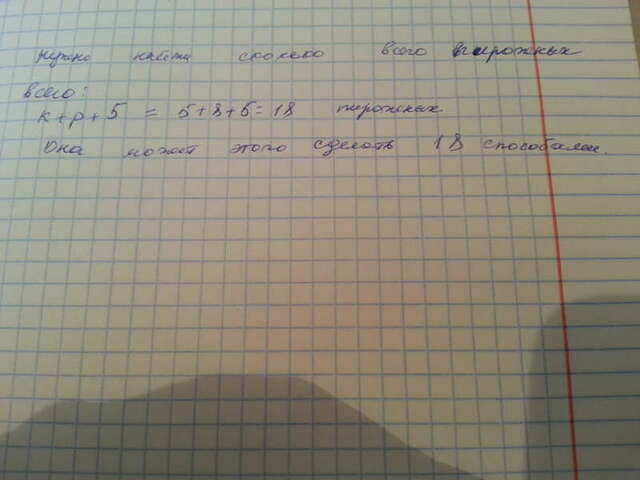 нужно найти сколько всего пирожных
всего:
к + р + 5 = 5 + 8 + 5 = 18 пирожных
Она может этого сделать 18 способами.